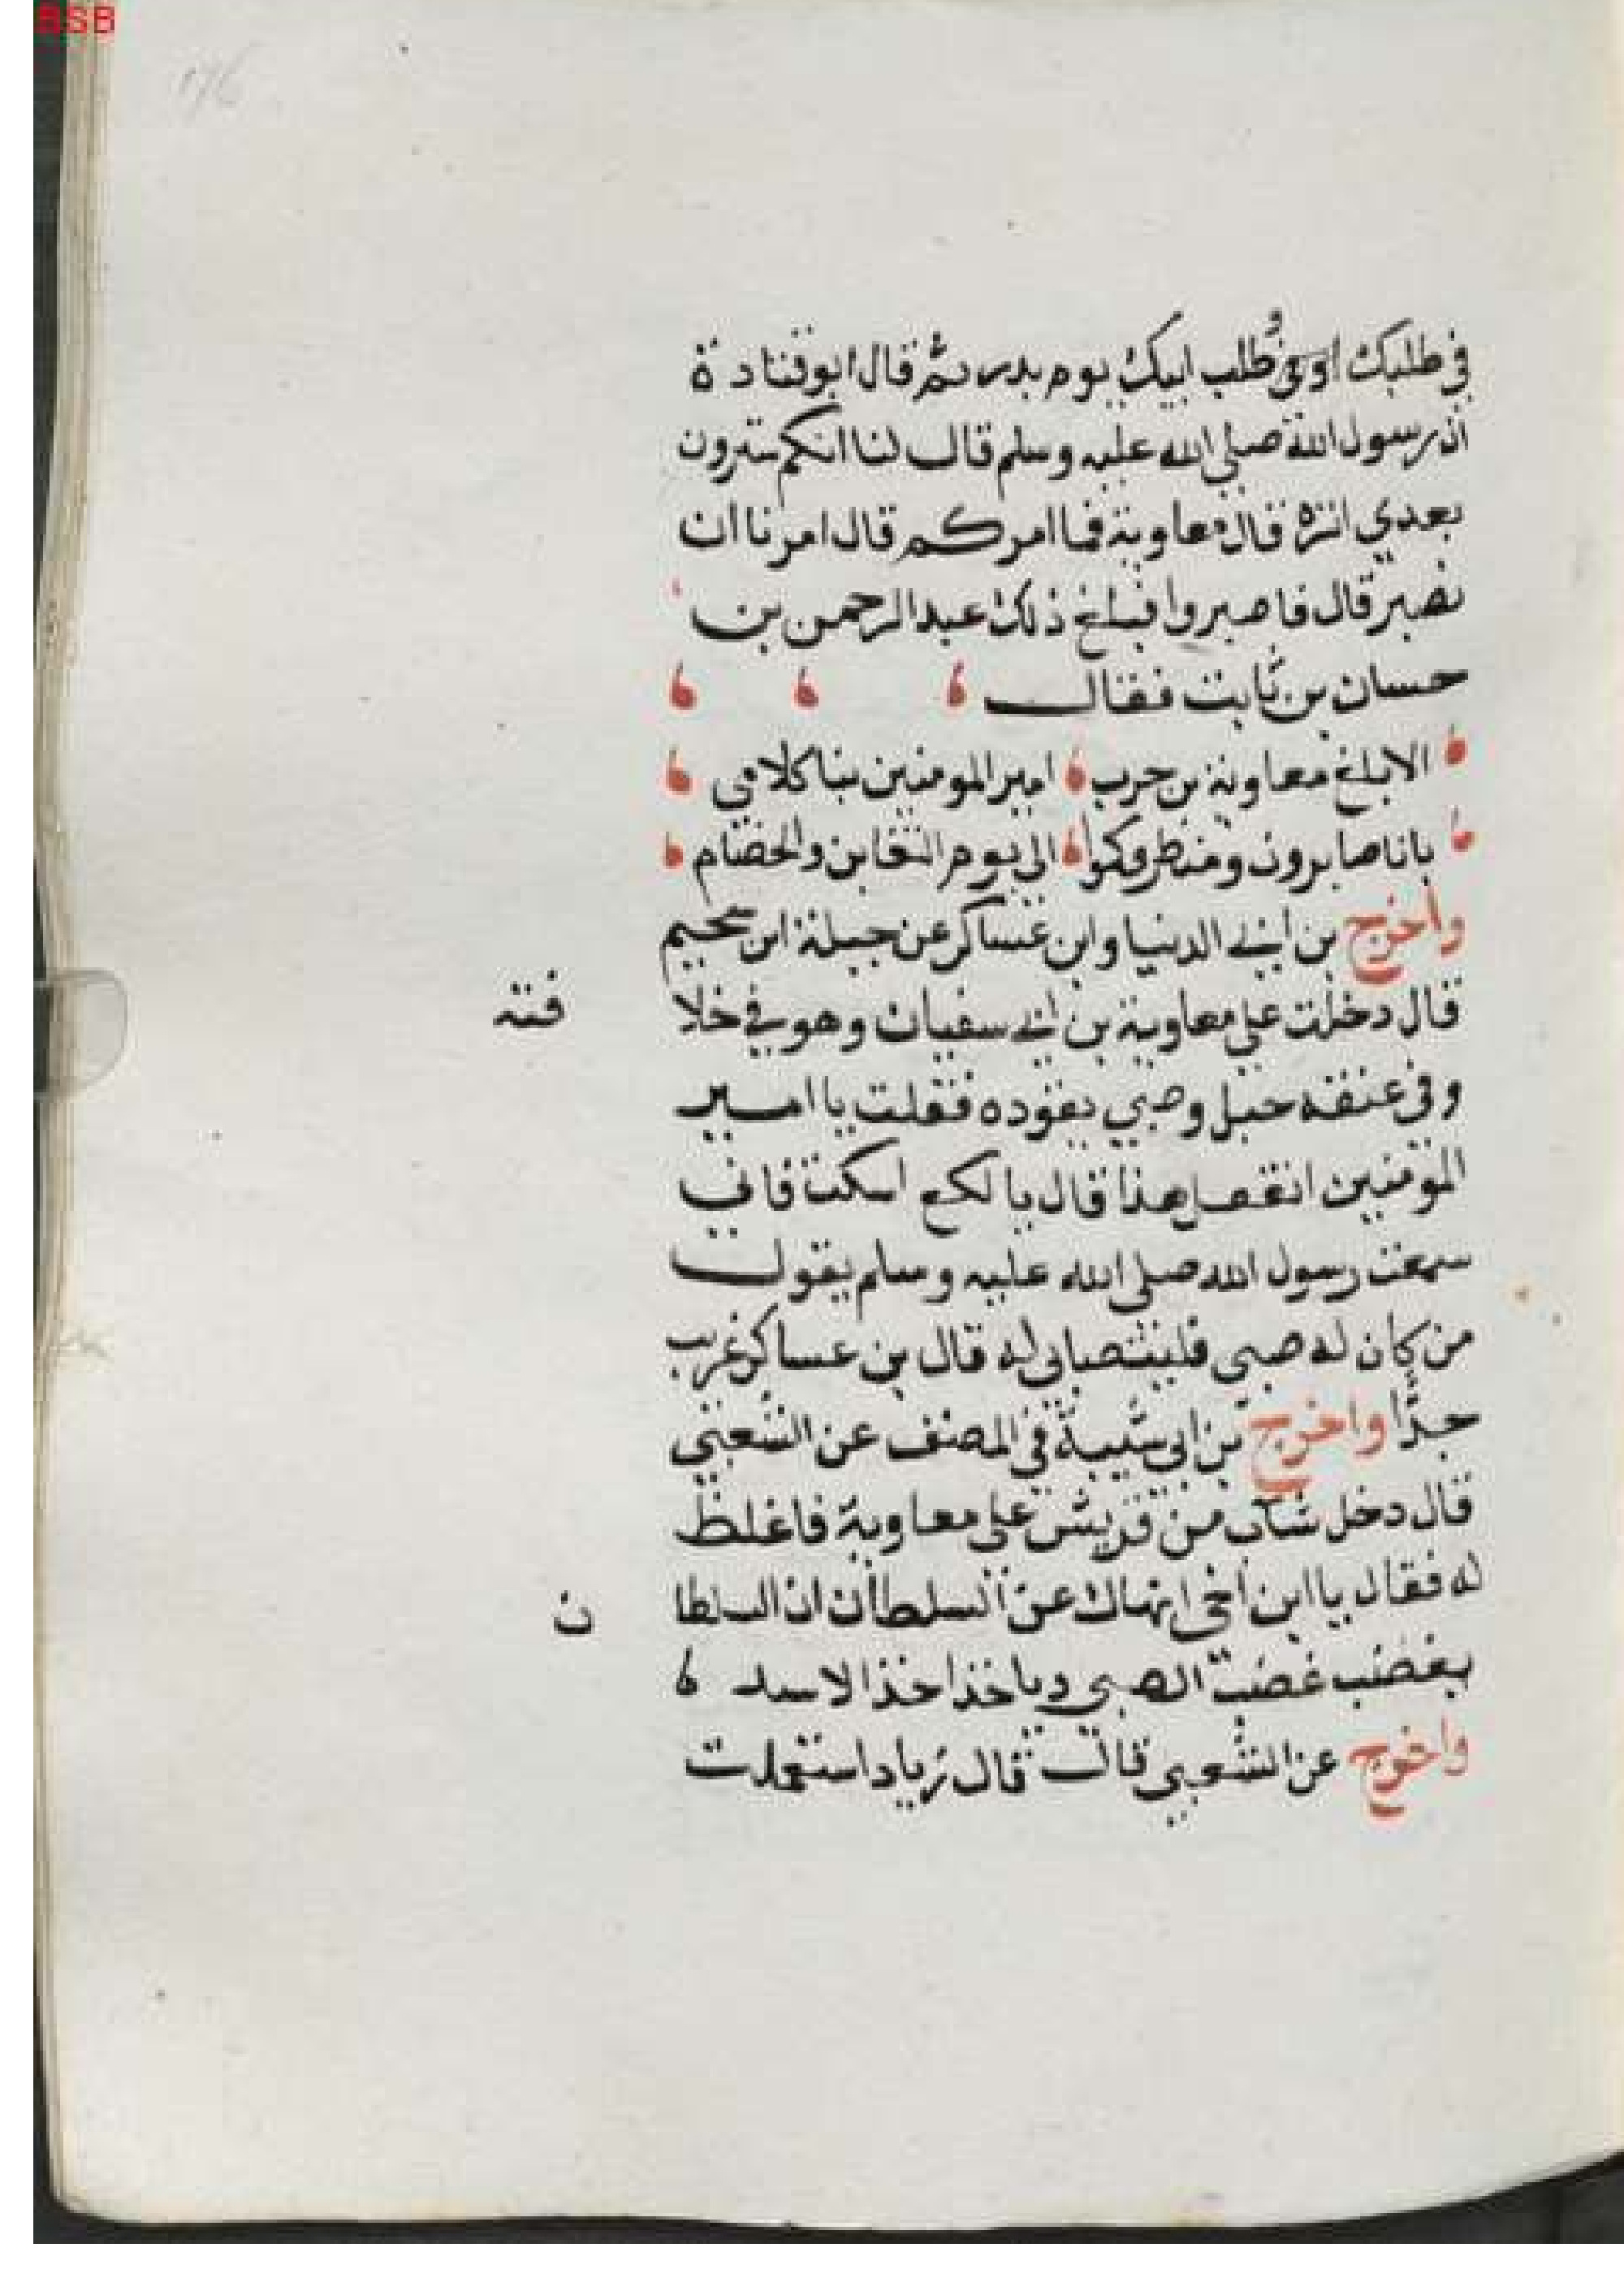 BSB
176
في طلبك او في طلب ابيك يوم بدر ثم قال ابو قتادة
ان رسول الله صلى الله عليه وسلم قال لنا انكم سترون
بعدي اثرة قال معاوية فما امركم قال امرنا ان
نصبر قال فاصبروا فبلغ ذلك عبد الرحمن بن
حسان بن ثابت فقال
الا بلغ معاوية بن حرب امير المومنين بنا كلامي
بانا صابرون ومنظروكوا الى يوم التغابن والخصام
واخرج بن ابي الدنيا وابن عساكر عن جبلة ابن سحيم
قال دخلت على معاوية بن ابي سفيان وهو في خلا فته
وفي عنقه حبل وصبي يقوده فقلت يا امير
المومنين اتفعل هذا قال يا لكع اسكت فاني
سمعت رسول الله صلى الله عليه وسلم يقول
من كان له صبي فليتصابى له قال بن عساكر غريب
جدا واخرج بن ابي شيبة في المصنف عن الشعبي
قال دخل شاب من قريش على معاوية فاغلظ
له فقال يا ابن اخي انهاك عن السلطان ان السلطا ن
يغضب غضب الصبي وياخذ اخذ الاسد
واخرج عن الشعبي قال قال زياد استعملت